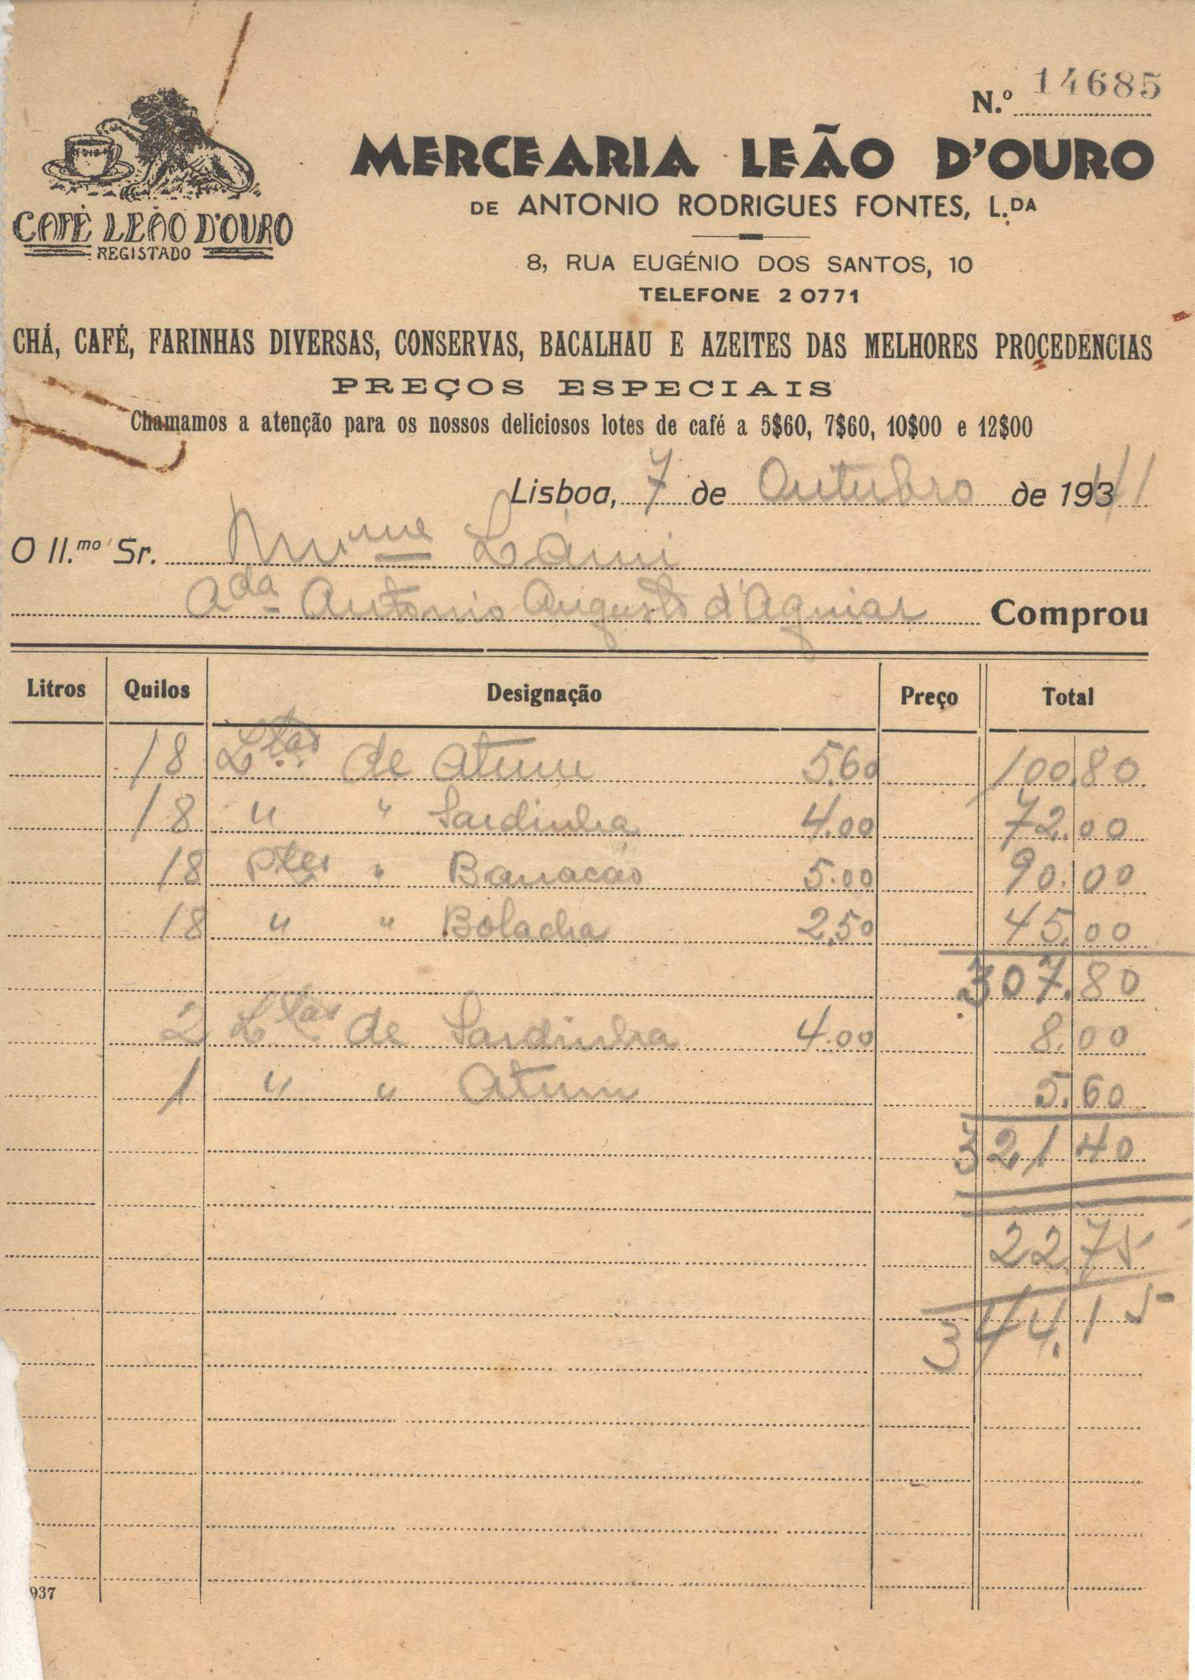 N.º 14685
CAFÉ LEÃO D'OURO
REGISTADO
MERCEARIA LEÃO D'OURO
DE ANTONIO RODRIGUES FONTES, L.DA
8, RUA EUGÉNIO DOS SANTOS, 10
TELEFONE 2 0771
CHÁ, CAFÉ, FARINHAS DIVERSAS, CONSERVAS, BACALHAU E AZEITES DAS MELHORES PROCEDENCIAS
PREÇOS ESPECIAIS
Chamamos a atenção para os nossos deliciosos lotes de café a 5$60, 7$60, 10$00 e 12$00
Lisboa, 7 de Outubro de 1941
O Il.mo Sr. Lámi
Ada Antonio Augusto d'Aguiar Comprou
Litros Quilos Designação Preço Total
18 Ltas de Atum 5.60 100.80
18 " " Sardinha 4.00 72.00
18 Ptes " 5.00 90.00
18 " " Bolacha 2,50 45.00
307.80
2 Ltas de Sardinha 4.00 8.00
1 " " Atum 5.60
321 40
22.75
344.15
937